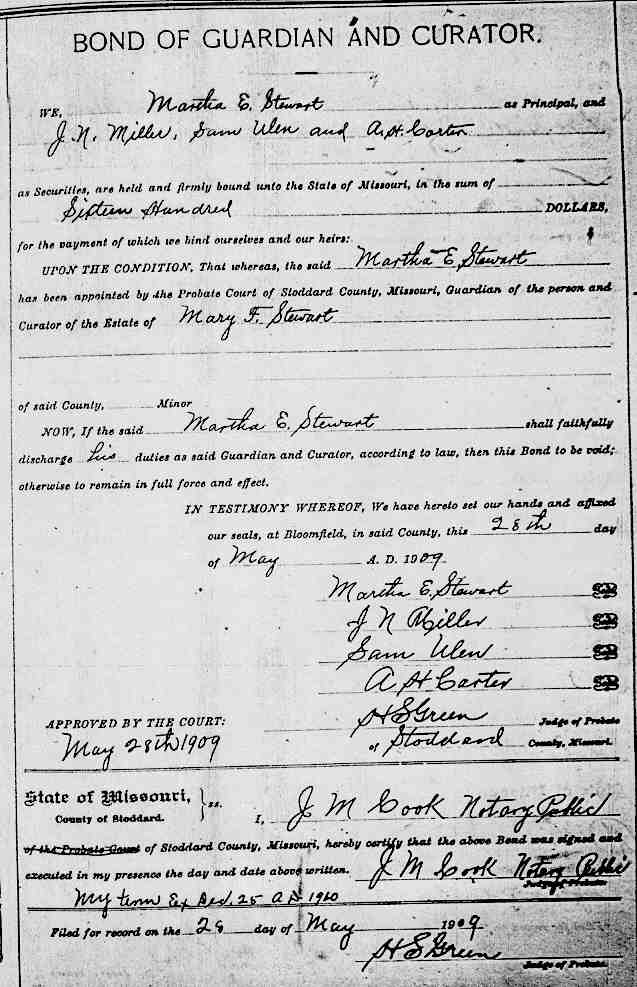 BOND OF GUARDIAN AND CURATOR.
WE, Martha E. Stewart as Principal, and
J. N. Miller, Sam Ulen and A. H. Carter
as Securities, are held and firmly bound unto the State of Missouri, in the sum of
Sixteen Hundred DOLLARS,
for the payment of which we bind ourselves and our heirs:
UPON THE CONDITION, That whereas, the said Martha E. Stewart
has been appointed by the Probate Court of Stoddard County, Missouri, Guardian of the person and
Curator of the Estate of Mary F. Stewart
of said County, Minor
NOW, If the said Martha E. Stewart shall faithfully
discharge his duties as said Guardian and Curator, according to law, then this Bond to be void;
otherwise to remain in full force and effect.
IN TESTIMONY WHEREOF, We have hereto set our hands and affixed
our seals, at Bloomfield, in said County, this 28th day
of May A. D. 1909.
Martha E. Stewart
J N Miller
Sam Ulen
A H Carter
APPROVED BY THE COURT: H S Green Judge of Probate
May 28th 1909 of Stoddard County, Missouri.
State of Missouri, } ss.
County of Stoddard. I, J M Cook Notary Public
of the Probate Court of Stoddard County, Missouri, hereby certify that the above Bond was signed and
executed in my presence the day and date above written. J M Cook Notary Public
Judge of Probate
My term Ex Dec. 25 A D 1910
Filed for record on the 28 day of May 1909
H S Green
Judge of Probate